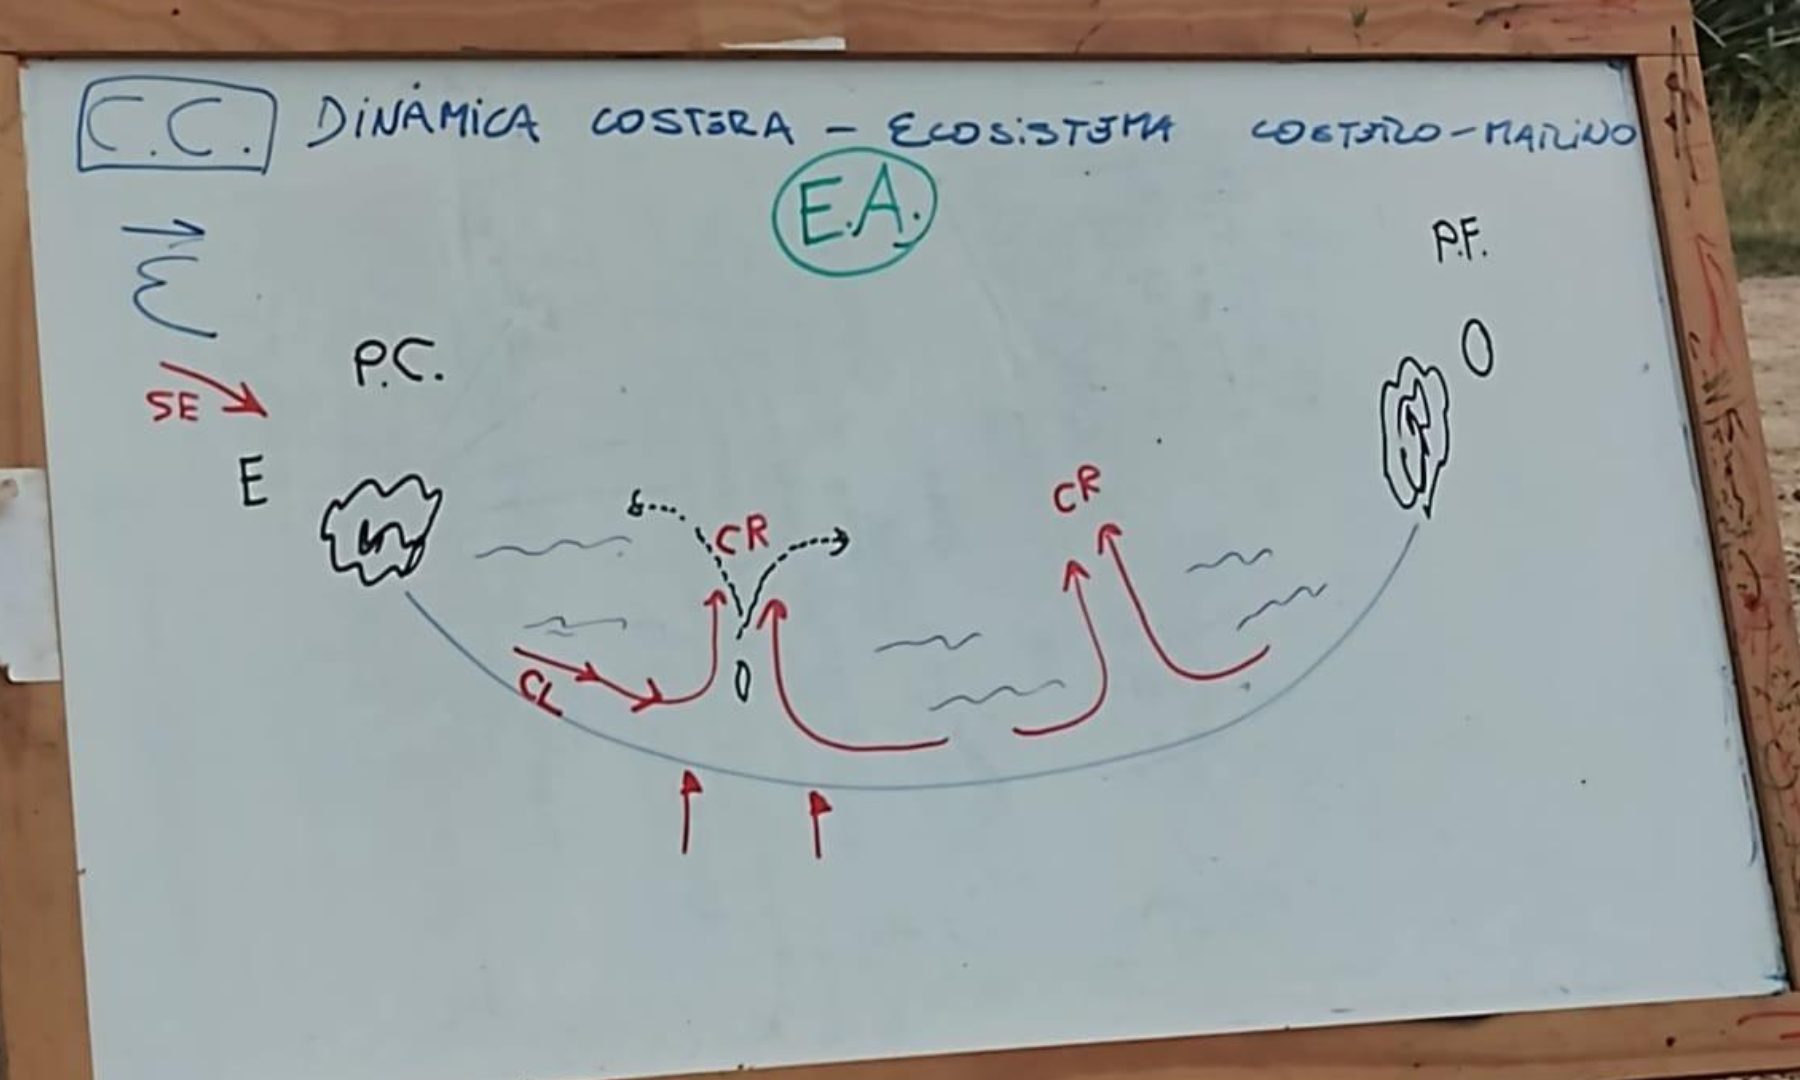 C.C. DINÁMICA COSTERA - ECOSISTEMA COSTERO-MARINO
E.A.
P.F.
P.C.
O
SE
E
CR
CR
CL